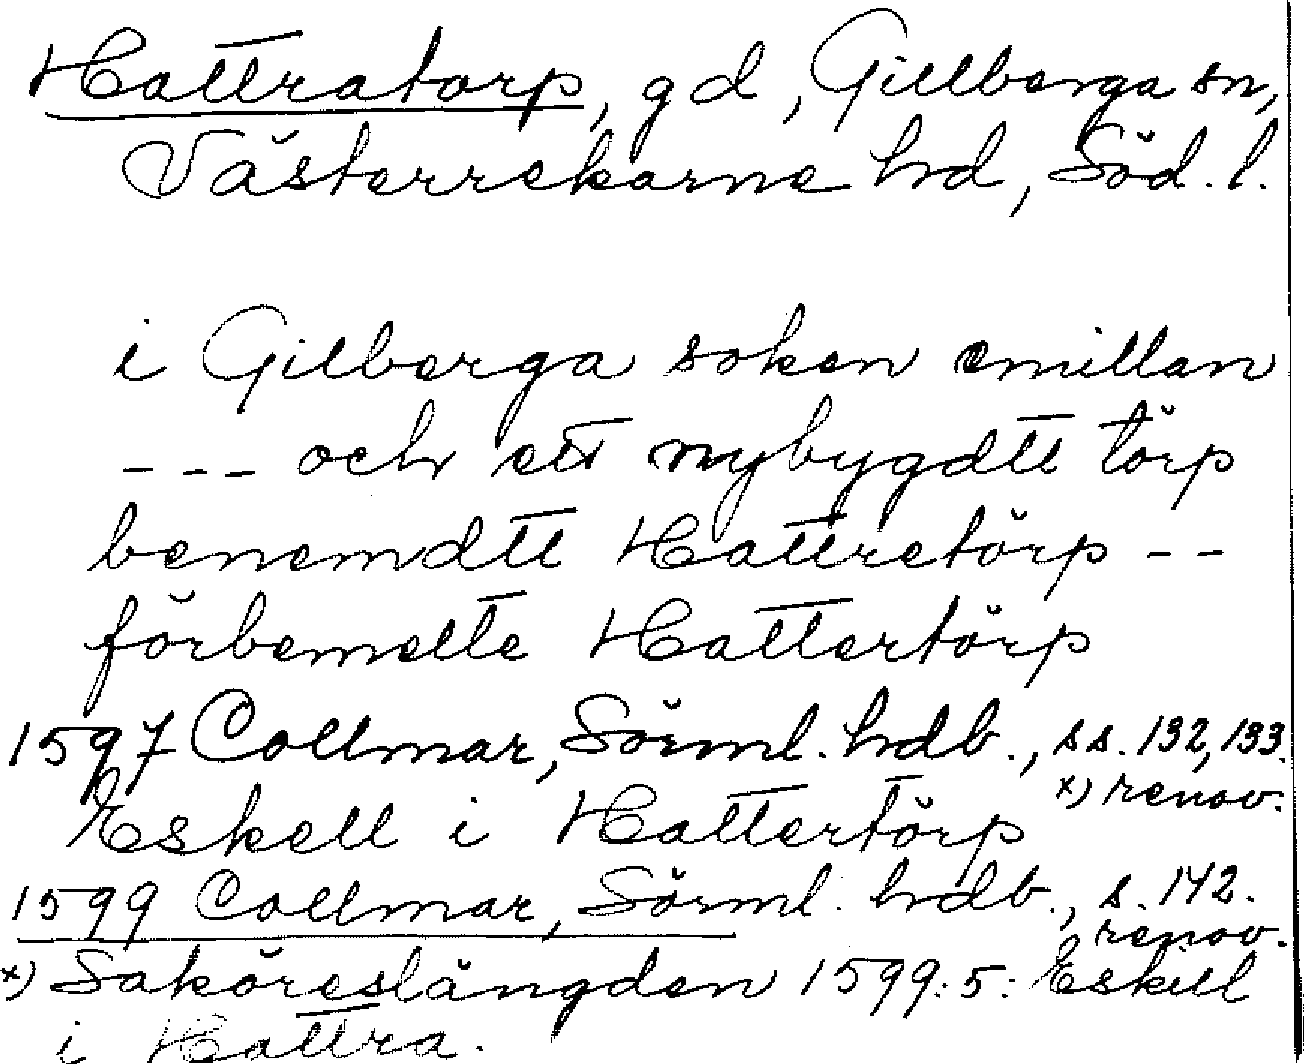 Hattratorp, gd, Gillberga sn,
Västerrekarne hd, Söd. l.
i Gilberga soken emillan
--- och ett nybygdtt törp
benemdtt Hattretörp --
förbemelte Hattertörp
1597 Collmar, Sörml. hdb., ss. 132, 133.
x) renov.
Eskell i Hattertörp
1599 Collmar, Sörml. hdb., s. 142.
renov.
x) Saköreslängden 1599:5: Eskill
i Hattra.